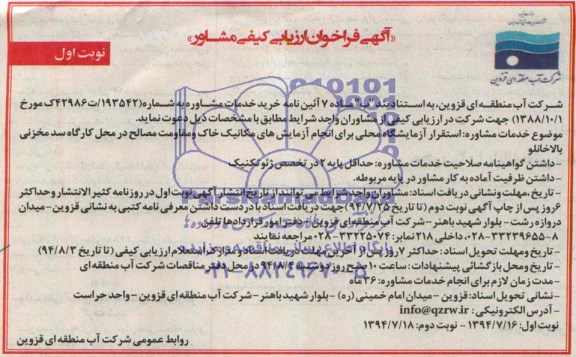 «آگهی فراخوان ارزیابی کیفی مشاور»
نوبت اول
شرکت آب منطقه ای قزوین
شرکت آب منطقه ای قزوین، به استناد بند "ب" ماده ۷ آئین نامه خرید خدمات مشاوره به شماره (۱۹۳۵۴۲/ت۴۲۹۸۶ک مورخ
۱۳۸۸/۱۰/۱) جهت شرکت در ارزیابی کیفی از مشاوران واجد شرایط مطابق با مشخصات ذیل دعوت نماید.
موضوع خدمات مشاوره: استقرار آزمایشگاه محلی برای انجام آزمایش های مکانیک خاک و مقاومت مصالح در محل کارگاه سد مخزنی
بالاخانلو
- داشتن گواهینامه صلاحیت خدمات مشاوره: حداقل پایه ۲ در تخصص ژئوتکنیک
- داشتن ظرفیت آماده به کار مشاور در پایه مربوطه.
- تاریخ، مهلت و نشانی دریافت اسناد: مشاوران واجد شرایط می توانند از تاریخ انتشار آگهی نوبت اول در روزنامه کثیر الانتشار و حداکثر
۶ روز پس از چاپ آگهی نوبت دوم (تا تاریخ ۹۴/۷/۲۵) جهت دریافت اسناد با در دست داشتن معرفی نامه کتبی به نشانی قزوین - میدان
دروازه رشت - بلوار شهید باهنر - شرکت آب منطقه ای قزوین - دفتر امور قراردادها تلفن
۸-۳۳۲۳۹۶۵۵-۰۲۸ داخلی ۲۱۸ نمابر: ۳۳۲۲۵۰۷۴-۰۲۸ مراجعه نمایند
- تاریخ و مهلت تحویل اسناد: حداکثر ۷ روز پس از آخرین مهلت دریافت اسناد و مدارک استعلام ارزیابی کیفی (تا تاریخ ۹۴/۸/۳)
- تاریخ و محل بازگشائی پیشنهادات: ساعت ۱۰ صبح روز دوشنبه ۹۴/۸/۴ در محل دفتر مناقصات شرکت آب منطقه ای
- مدت زمان لازم برای انجام خدمات مشاوره: ۳۶ ماه
- نشانی تحویل اسناد: قزوین - میدان امام خمینی (ره) - بلوار شهید باهنر - شرکت آب منطقه ای قزوین - واحد حراست
- آدرس الکترونیکی: info@qzrw.ir
نوبت اول: ۱۳۹۴/۷/۱۶ - نوبت دوم: ۱۳۹۴/۷/۱۸
روابط عمومی شرکت آب منطقه ای قزوین